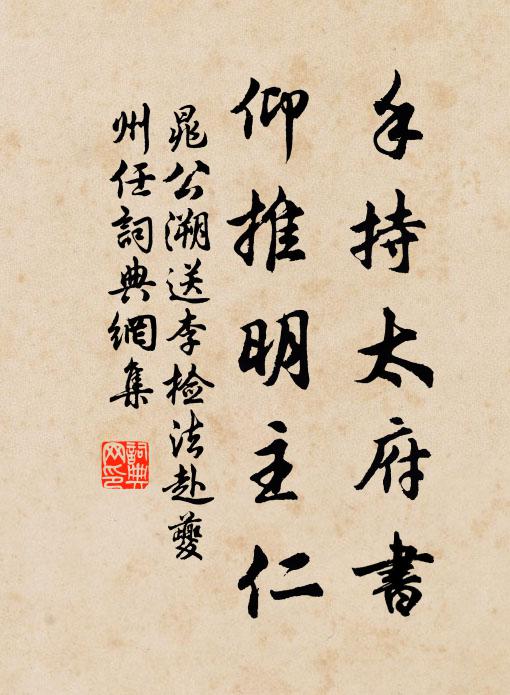 手持太府書
仰推明主仁
晁公溯送李檢法赴夔
州任詞典網集
詞典網印